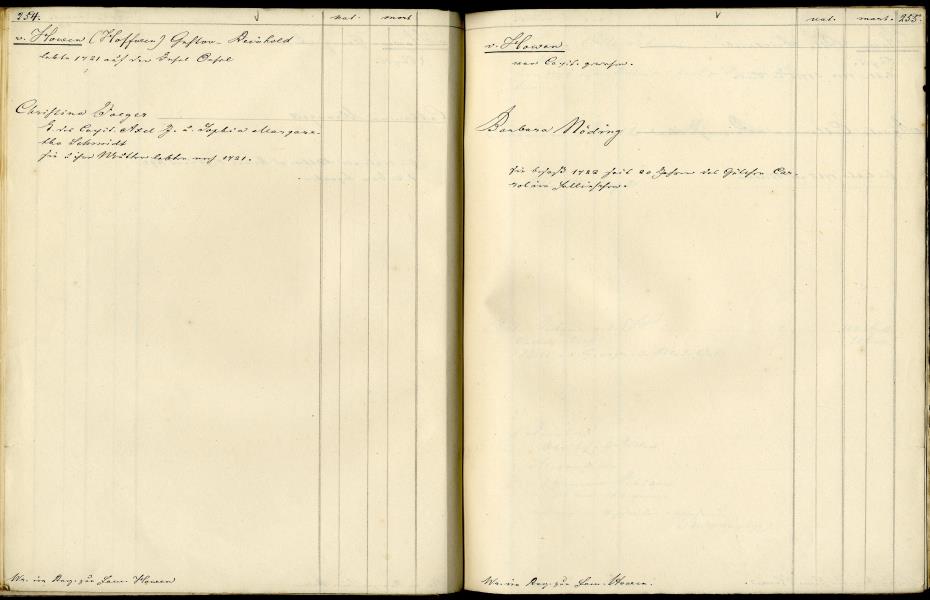 254.
nat.
mort
v. Howen (Hoffwen) Gustav Reinhold
lebte 1721 auf der Insel Oesel
Christina Jaeger
T. des Capit. Axel J. u. Sophia Margare-
tha Schmidt
sie u ihre Mutter lebten noch 1721.
im Reg. zur Fam. Howen
nat.
mort.
255.
v. Howen
war Capit. gewesen.
Barbara Nöding
sie besass 1722 seit 20 Jahren das Gütchen
im Reg. zur Fam. Howen.